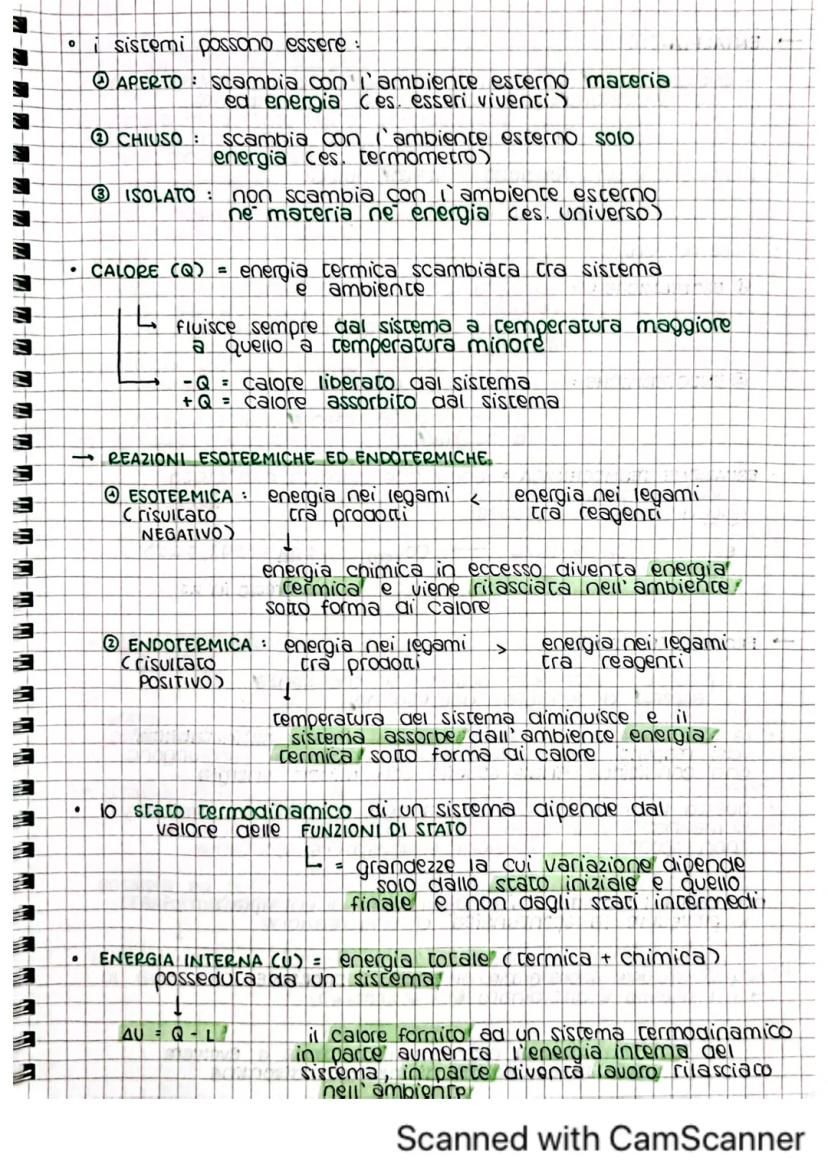 • i sistemi possono essere :
① APERTO : scambia con l'ambiente esterno materia
ed energia (es. esseri viventi)
② CHIUSO : scambia con l'ambiente esterno solo
energia (es. termometro)
③ ISOLATO : non scambia con l'ambiente esterno
né materia né energia (es. universo)
• CALORE (Q) = energia termica scambiata tra sistema
e ambiente
↳ fluisce sempre dal sistema a temperatura maggiore
a quello a temperatura minore
→ -Q = calore liberato dal sistema
+Q = calore assorbito dal sistema
→ REAZIONI ESOTERMICHE ED ENDOTERMICHE
① ESOTERMICA : energia nei legami < energia nei legami
(risultato tra prodotti tra reagenti
NEGATIVO) ↓
energia chimica in eccesso diventa energia
termica e viene rilasciata nell'ambiente
sotto forma di calore
② ENDOTERMICA : energia nei legami > energia nei legami
(risultato tra prodotti tra reagenti
POSITIVO) ↓
temperatura del sistema diminuisce e il
sistema assorbe dall'ambiente energia
termica sotto forma di calore
• lo stato termodinamico di un sistema dipende dal
valore delle FUNZIONI DI STATO
↳ = grandezze la cui variazione dipende
solo dallo stato iniziale e quello
finale e non dagli stati intermedi
• ENERGIA INTERNA (U) = energia totale (termica + chimica)
posseduta da un sistema
↓
ΔU = Q - L il calore fornito ad un sistema termodinamico
in parte aumenta l'energia interna del
sistema, in parte diventa lavoro rilasciato
nell'ambiente
Scanned with CamScanner